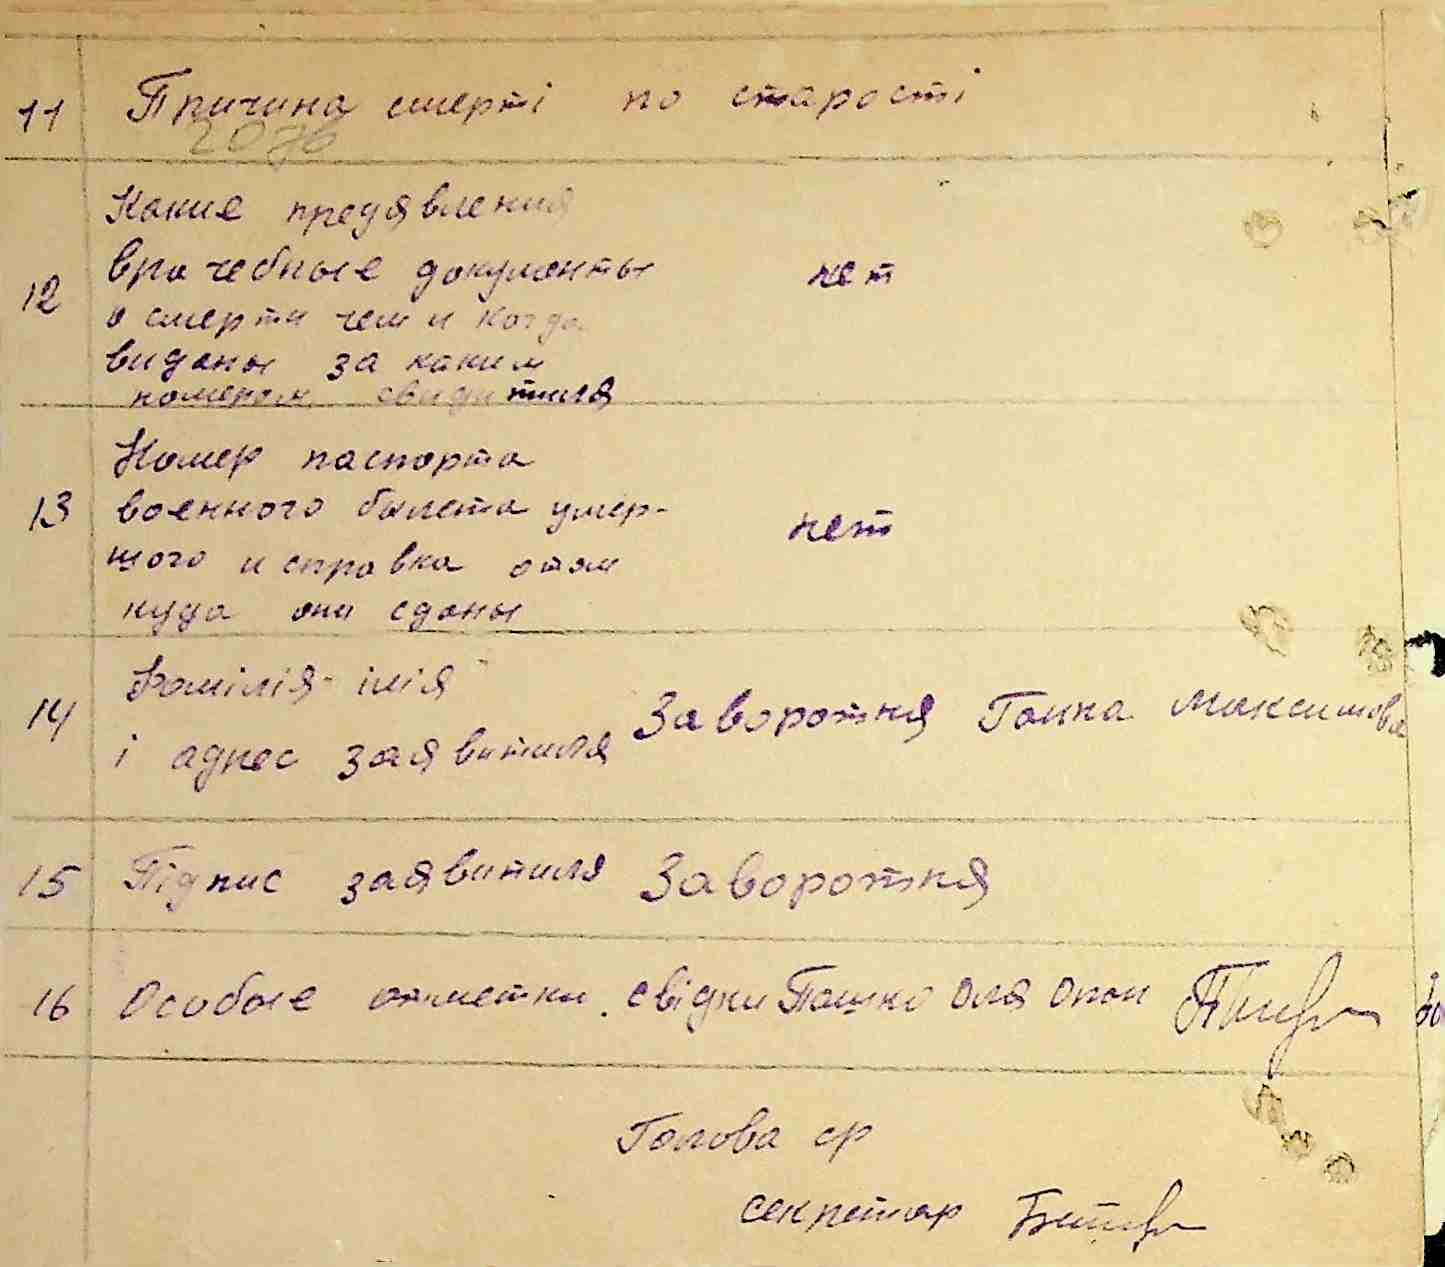 11 Причина смерті по старості
Какие предявления
врачебные документы
12 нет
о смерти чем и когда
виданы за каким
номером
Номер паспорта
13 военного билета умер-
нет
шого и справка
куда они сданы
Фамілія імія
14 Заворотня Ганна Максимова
і адрес заявитиля
15 Підпис заявитиля Заворотня
16 Особые отметки. свідки Пашко Оля
Голова ср
секретар